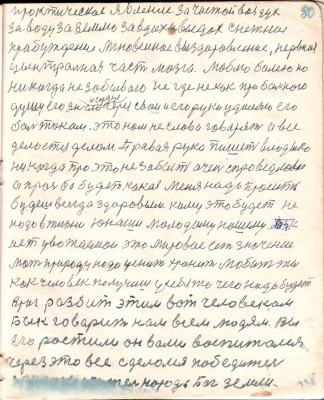 50
практическое явление за чистой воздух
за воду за землю за вдох и выдох снежное
пробуждение мгновенное выздоровление, нервная
центральная часть мозга. Люблю болею но
никогда не забываю не где некак про больного
душу его знаю сердце свои и его руки удаляю его
болью током. это нам не слова говорят а все
делается делом правая рука пишет владыко
никогда про это не забыть очень справедливо
а просьба будет какая меня надо просить
будеш всегда здоровым кому это будет не
надо в жизни юноши молодому нашему
нет уважаемые это мировое есть значение
мать природу надо ценить хранить любить ни
как человек получиш у себя то чего надо будет
Враг разбит этим вот человеком
Бын говорит нам всем людям. Вы
его ростили он вами воспитался
через это все сделался победител
народа Бог земли.